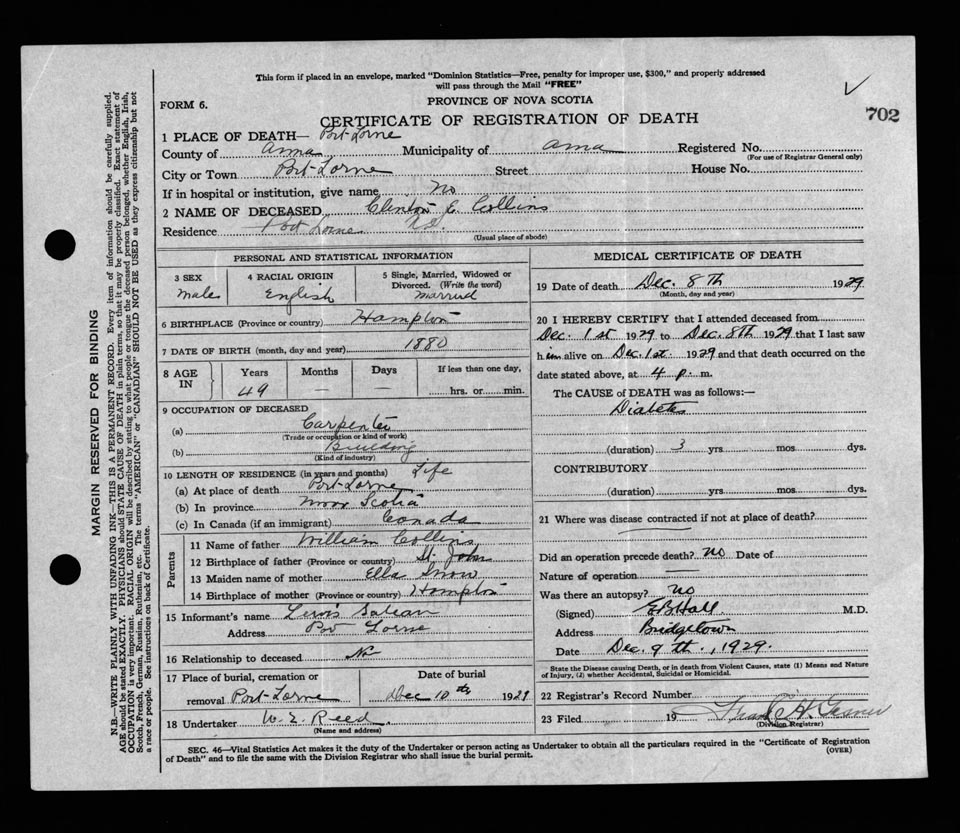 This form if placed in an envelope, marked "Dominion Statistics—Free, penalty for improper use, $300," and properly addressed
will pass through the Mail "FREE"
FORM 6.
PROVINCE OF NOVA SCOTIA
702
CERTIFICATE OF REGISTRATION OF DEATH
1 PLACE OF DEATH— Port Lorne
County of Anna Municipality of Anna Registered No.
(For use of Registrar General only)
City or Town Port Lorne Street House No.
If in hospital or institution, give name No
2 NAME OF DECEASED Clinton E. Collins
Residence Port Lorne N.S.
(Usual place of abode)
PERSONAL AND STATISTICAL INFORMATION
3 SEX Male
4 RACIAL ORIGIN English
5 Single, Married, Widowed or
Divorced. (Write the word)
Married
6 BIRTHPLACE (Province or country) Hampton
7 DATE OF BIRTH (month, day and year) 1880
8 AGE IN
Years Months Days If less than one day,
49 — — hrs. or min.
9 OCCUPATION OF DECEASED
(a) Carpenter
(Trade or occupation or kind of work)
(b) Building
(Kind of industry)
10 LENGTH OF RESIDENCE (in years and months) Life
(a) At place of death Port Lorne
(b) In province Nova Scotia
(c) In Canada (if an immigrant) Canada
Parents
11 Name of father William Collins
12 Birthplace of father (Province or country) St. John
13 Maiden name of mother Ella Snow
14 Birthplace of mother (Province or country) Hampton
15 Informant's name Lewis
Address Port Lorne
16 Relationship to deceased No
17 Place of burial, cremation or
removal Port Lorne
Date of burial
Dec 10th 1929
18 Undertaker W. E. Reed
(Name and address)
MEDICAL CERTIFICATE OF DEATH
19 Date of death Dec. 8th 1929
(Month, day and year)
20 I HEREBY CERTIFY that I attended deceased from
Dec. 1st 1929 to Dec. 8th 1929 that I last saw
him alive on Dec. 1st. 1929 and that death occurred on the
date stated above, at 4 p. m.
The CAUSE OF DEATH was as follows:—
Diabetes
(duration) 3 yrs mos dys.
CONTRIBUTORY
(duration) yrs mos dys.
21 Where was disease contracted if not at place of death?
—
Did an operation precede death? No Date of
Nature of operation —
Was there an autopsy? No
(Signed) E.B. Hall M.D.
Address Bridgetown
Date Dec. 9th, 1929.
State the Disease causing Death, or in death from Violent Causes, state (1) Means and Nature
of Injury, (2) whether Accidental, Suicidal or Homicidal.
22 Registrar's Record Number
23 Filed 19 Frank H.
(Division Registrar)
SEC. 46—Vital Statistics Act makes it the duty of the Undertaker or person acting as Undertaker to obtain all the particulars required in the "Certificate of Registration
of Death" and to file the same with the Division Registrar who shall issue the burial permit.
(OVER)
MARGIN RESERVED FOR BINDING
N.B.—WRITE PLAINLY WITH UNFADING INK—THIS IS A PERMANENT RECORD. Every item of information should be carefully supplied.
AGE should be stated EXACTLY. PHYSICIANS should STATE CAUSE OF DEATH in plain terms, so that it may be properly classified. Exact statement of
OCCUPATION is very important. RACIAL ORIGIN will be described by stating to what people or tongue the deceased person belonged, whether English, Irish,
Scotch, French, German, Russian, Ruthenian, etc. The terms "AMERICAN" or "CANADIAN" SHOULD NOT BE USED as they express citizenship but not
a race or people. See instructions on back of Certificate.